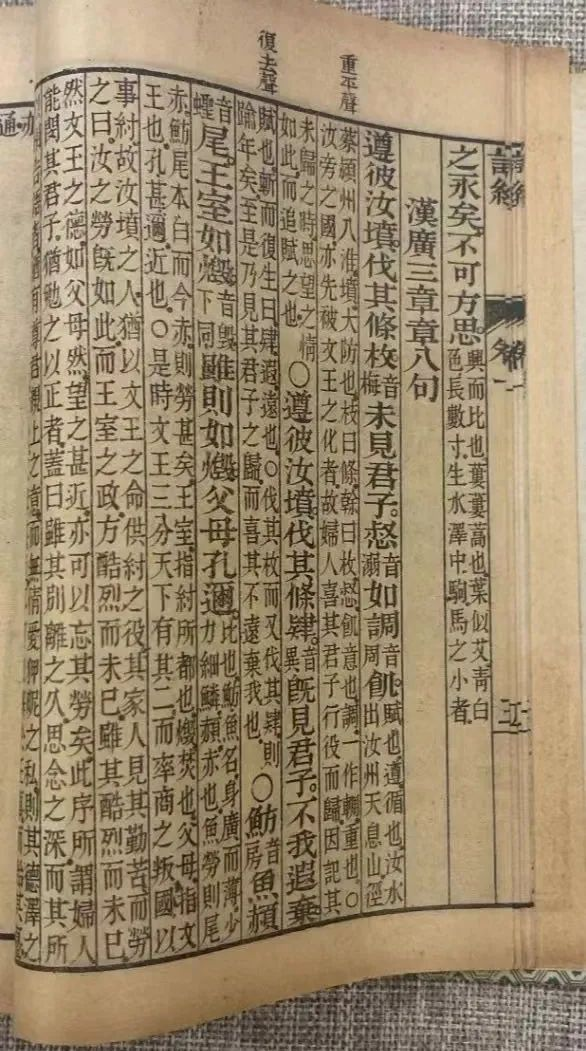 詩經
卷一
重平聲
復去聲
之永矣。不可方思。興而比也蔞蔞蒿也葉似艾青白
色長數寸生水澤中駒馬之小者
漢廣三章章八句
遵彼汝墳。伐其條枚。音梅未見君子。惄音溺如調音周飢。賦也遵循也汝水
出汝州天息山徑
蔡潁州入淮墳大防也枝曰條榦曰枚惄飢意也調一作輖重也○
汝旁之國亦先被文王之化者故婦人喜其君子行役而歸因記其
未歸之時思望之情
如此而追賦之也○遵彼汝墳。伐其條肄。音異既見君子。不我遐棄。
賦也斬而復生曰肄遐遠也○伐其枚而又伐其肄則
踰年矣至是乃見其君子之歸而喜其不遠棄我也○魴音房魚赬
音蟶尾。王室如燬。音毀下同雖則如燬。父母孔邇。比也魴魚名身廣而薄少
力細鱗赬赤也魚勞則尾
赤魴尾本白而今赤則勞甚矣王室指紂所都也燬焚也父母指文
王也孔甚邇近也○是時文王三分天下有其二而率商之叛國以
事紂故汝墳之人猶以文王之命供紂之役其家人見其勤苦而勞
之曰汝之勞既如此而王室之政方酷烈而未已雖其酷烈而未已
然文王之德如父母然望之甚近亦可以忘其勞矣此序所謂婦人
能閔其君子猶勉之以正者蓋曰雖其別離之久思念之深而其所
告語者猶有尊君親上之意而無情愛狎昵之私則其德澤之
亦通